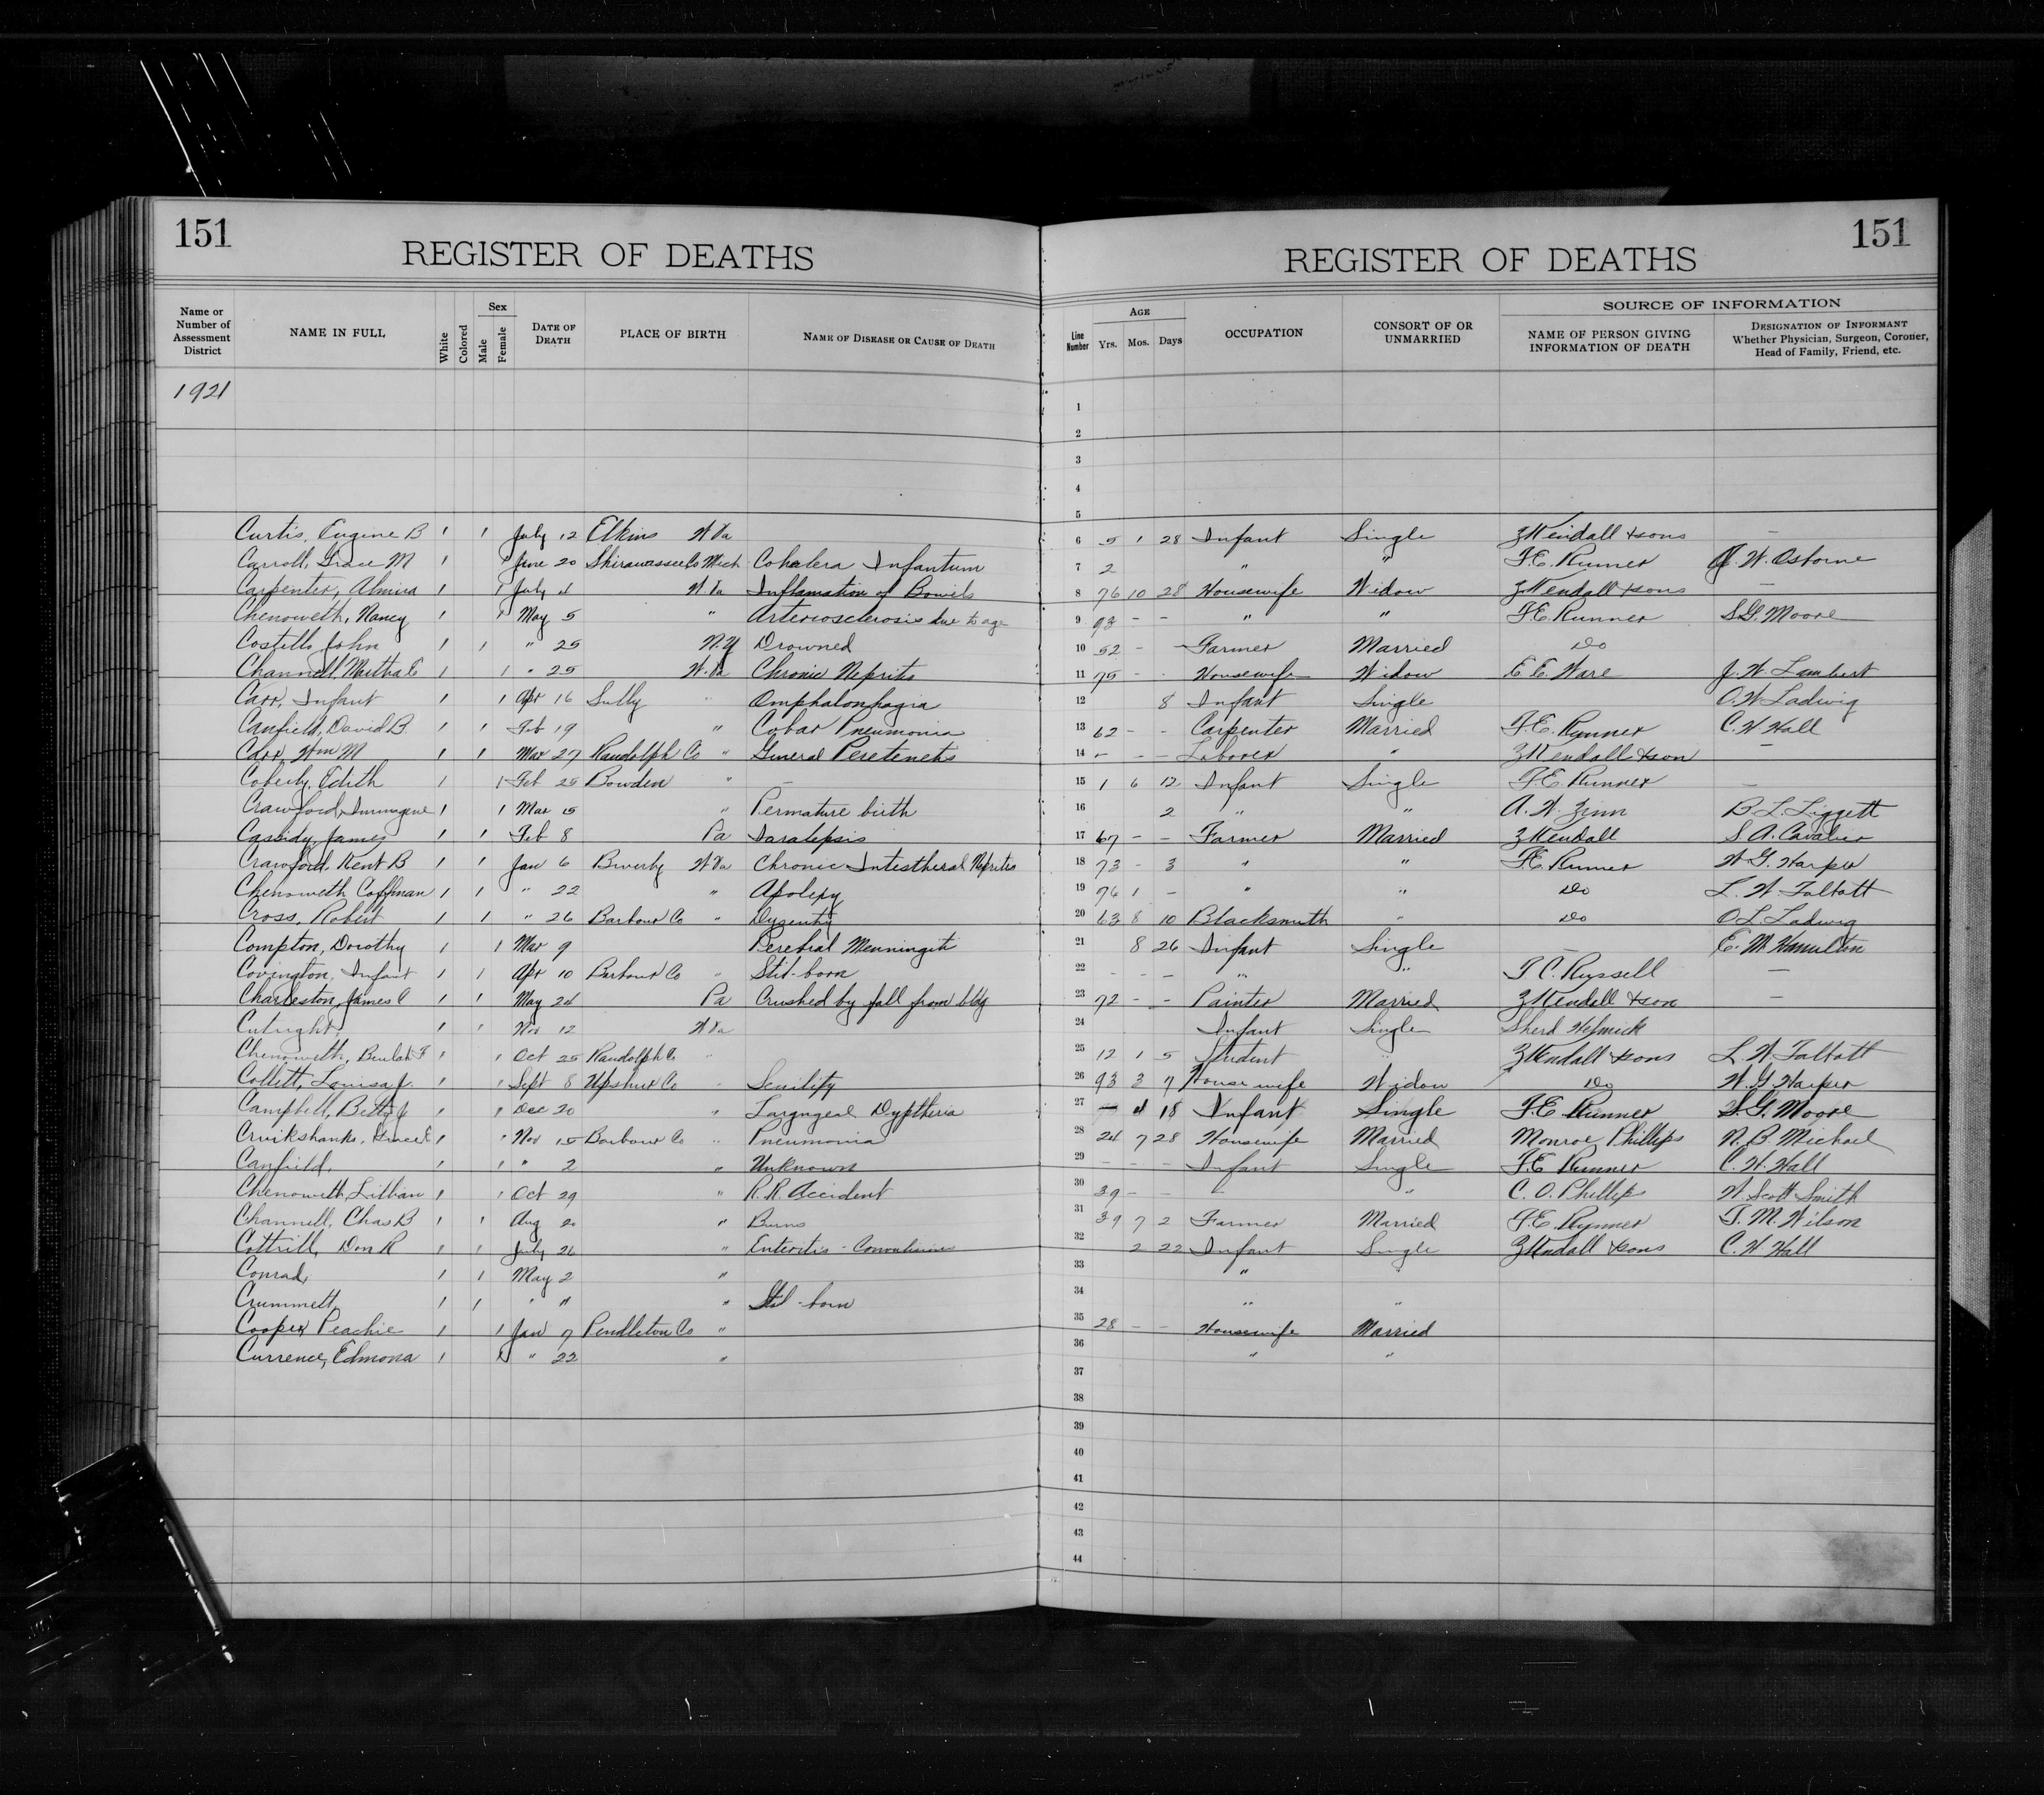 151
REGISTER OF DEATHS
Name or Number of Assessment District NAME IN FULL White Colored Sex Male Female DATE OF DEATH PLACE OF BIRTH NAME OF DISEASE OR CAUSE OF DEATH
1921
Curtis, Eugene B 1 1 July 12 Elkins W Va
Carroll, Grace M 1 1 June 20 Shirawassee Co Mich Coholera Infantum
Carpenter, Almira 1 1 July 4 W. Va Inflamation of Bowels
Chenoweth, Nancy 1 1 May 5 " Arteriosclerosis due to age
Costello, John 1 1 " 25 N.Y Drowned
Channell, Martha E 1 1 " 25 W. Va Chronic Neprits
Carr, Infant 1 1 Apr 16 Sully " Omphalonphagia
Canfield, David B. 1 1 Feb 19 " Cobar Pneumonia
Carr, Wm M 1 1 Mar 27 Randolph Co " General Peretenets
Coberly, Edith 1 1 Feb 25 Bowden " —
Crawford, Immogene 1 1 Mar 15 " Permature birth
Cassidy, James 1 1 Feb 8 Pa Paralepsis
Crawford, Kent B 1 1 Jan 6 Beverly W Va Chronic Intestheral Neprites
Chenoweth Coffman 1 1 " 22 " Apolepy
Cross, Robert 1 1 " 26 Barbour Co " Dysenty
Compton, Dorothy 1 1 Mar 9 Perebral Menningiti
Covington, Infant 1 1 Apr 10 Barbour Co " Stil-born
Charleston, James C 1 1 May 24 Pa Crushed by fall from bldg
Cutright, 1 1 Nov 12 W Va
Chenoweth, Beulah F 1 1 Oct 25 Randolph Co "
Collett, Louisa J. 1 1 Sept 8 Upshur Co " Senility
Campbell, Betty J 1 1 Dec 20 " Laryngeal Dyptheria
Cruikshanks, Grace E 1 1 Nov 15 Barbour Co " Pneumonia
Canfield, 1 1 " 2 " Unknown
Chenoweth, Lillian 1 1 Oct 29 " R. R. Accident
Channell, Chas B 1 1 Aug 20 " Burns
Cottrill, Don R 1 1 July 26 " Enteritis - Convulsions
Conrad, 1 1 May 2 "
Crummett, 1 1 " " " Stil-born
Cooper Peachie 1 1 Jan 7 Pendleton Co "
Currence, Edmona 1 1 " 22 "
151
REGISTER OF DEATHS
Line Number AGE Yrs. Mos. Days OCCUPATION CONSORT OF OR UNMARRIED SOURCE OF INFORMATION NAME OF PERSON GIVING INFORMATION OF DEATH DESIGNATION OF INFORMANT Whether Physician, Surgeon, Coroner, Head of Family, Friend, etc.
1
2
3
4
5
6 5 1 28 Infant Single Z Kendall & sons —
7 2 " " F.E. Runner W. Osborne
8 76 10 28 Housewife Widow Z Kendall & sons —
9 93 - - " " F.E. Runner S.G. Moore
10 52 - Farmer Married Do
11 75 - - Housewife Widow E. E. Ware J. W. Lambert
12 8 Infant Single O. W. Ladwig
13 62 - - Carpenter Married F.E. Runner C. W Hall
14 - - - Laborer " Z Kendall & son —
15 1 6 12 Infant Single F.E. Runner —
16 2 " " A. W. Zinn B. L. Liggett
17 67 - - Farmer Married Z Kendall S. A. Cavalier
18 73 - 3 " " F.E. Runner W. G. Harper
19 76 1 - " " Do L. W. Talbott
20 63 8 10 Blacksmith " Do O. L. Ladwig
21 8 26 Infant Single — E. M. Hamilton
22 - - - " " I C. Russell —
23 72 - - Painter Married Z Kendall & son —
24 Infant Single Sherd Helmick
25 12 1 5 Student " Z Kendall & sons L. W. Talbott
26 93 3 7 Housewife Widow Do W. G. Harper
27 - 4 18 Infant Single F.E. Runner S. G. Moore
28 24 7 28 Housewife Married Monroe Phillips N. B. Michael
29 - - - Infant Single F.E Runner C. W. Hall
30 39 - - - " C. O. Phillips W. Scott Smith
31 39 7 2 Farmer Married F.E. Runner T. M. Wilson
32 2 22 Infant Single Z Kendall & sons C. W. Hall
33 " "
34 " "
35 28 - - Housewife Married
36 " "
37
38
39
40
41
42
43
44